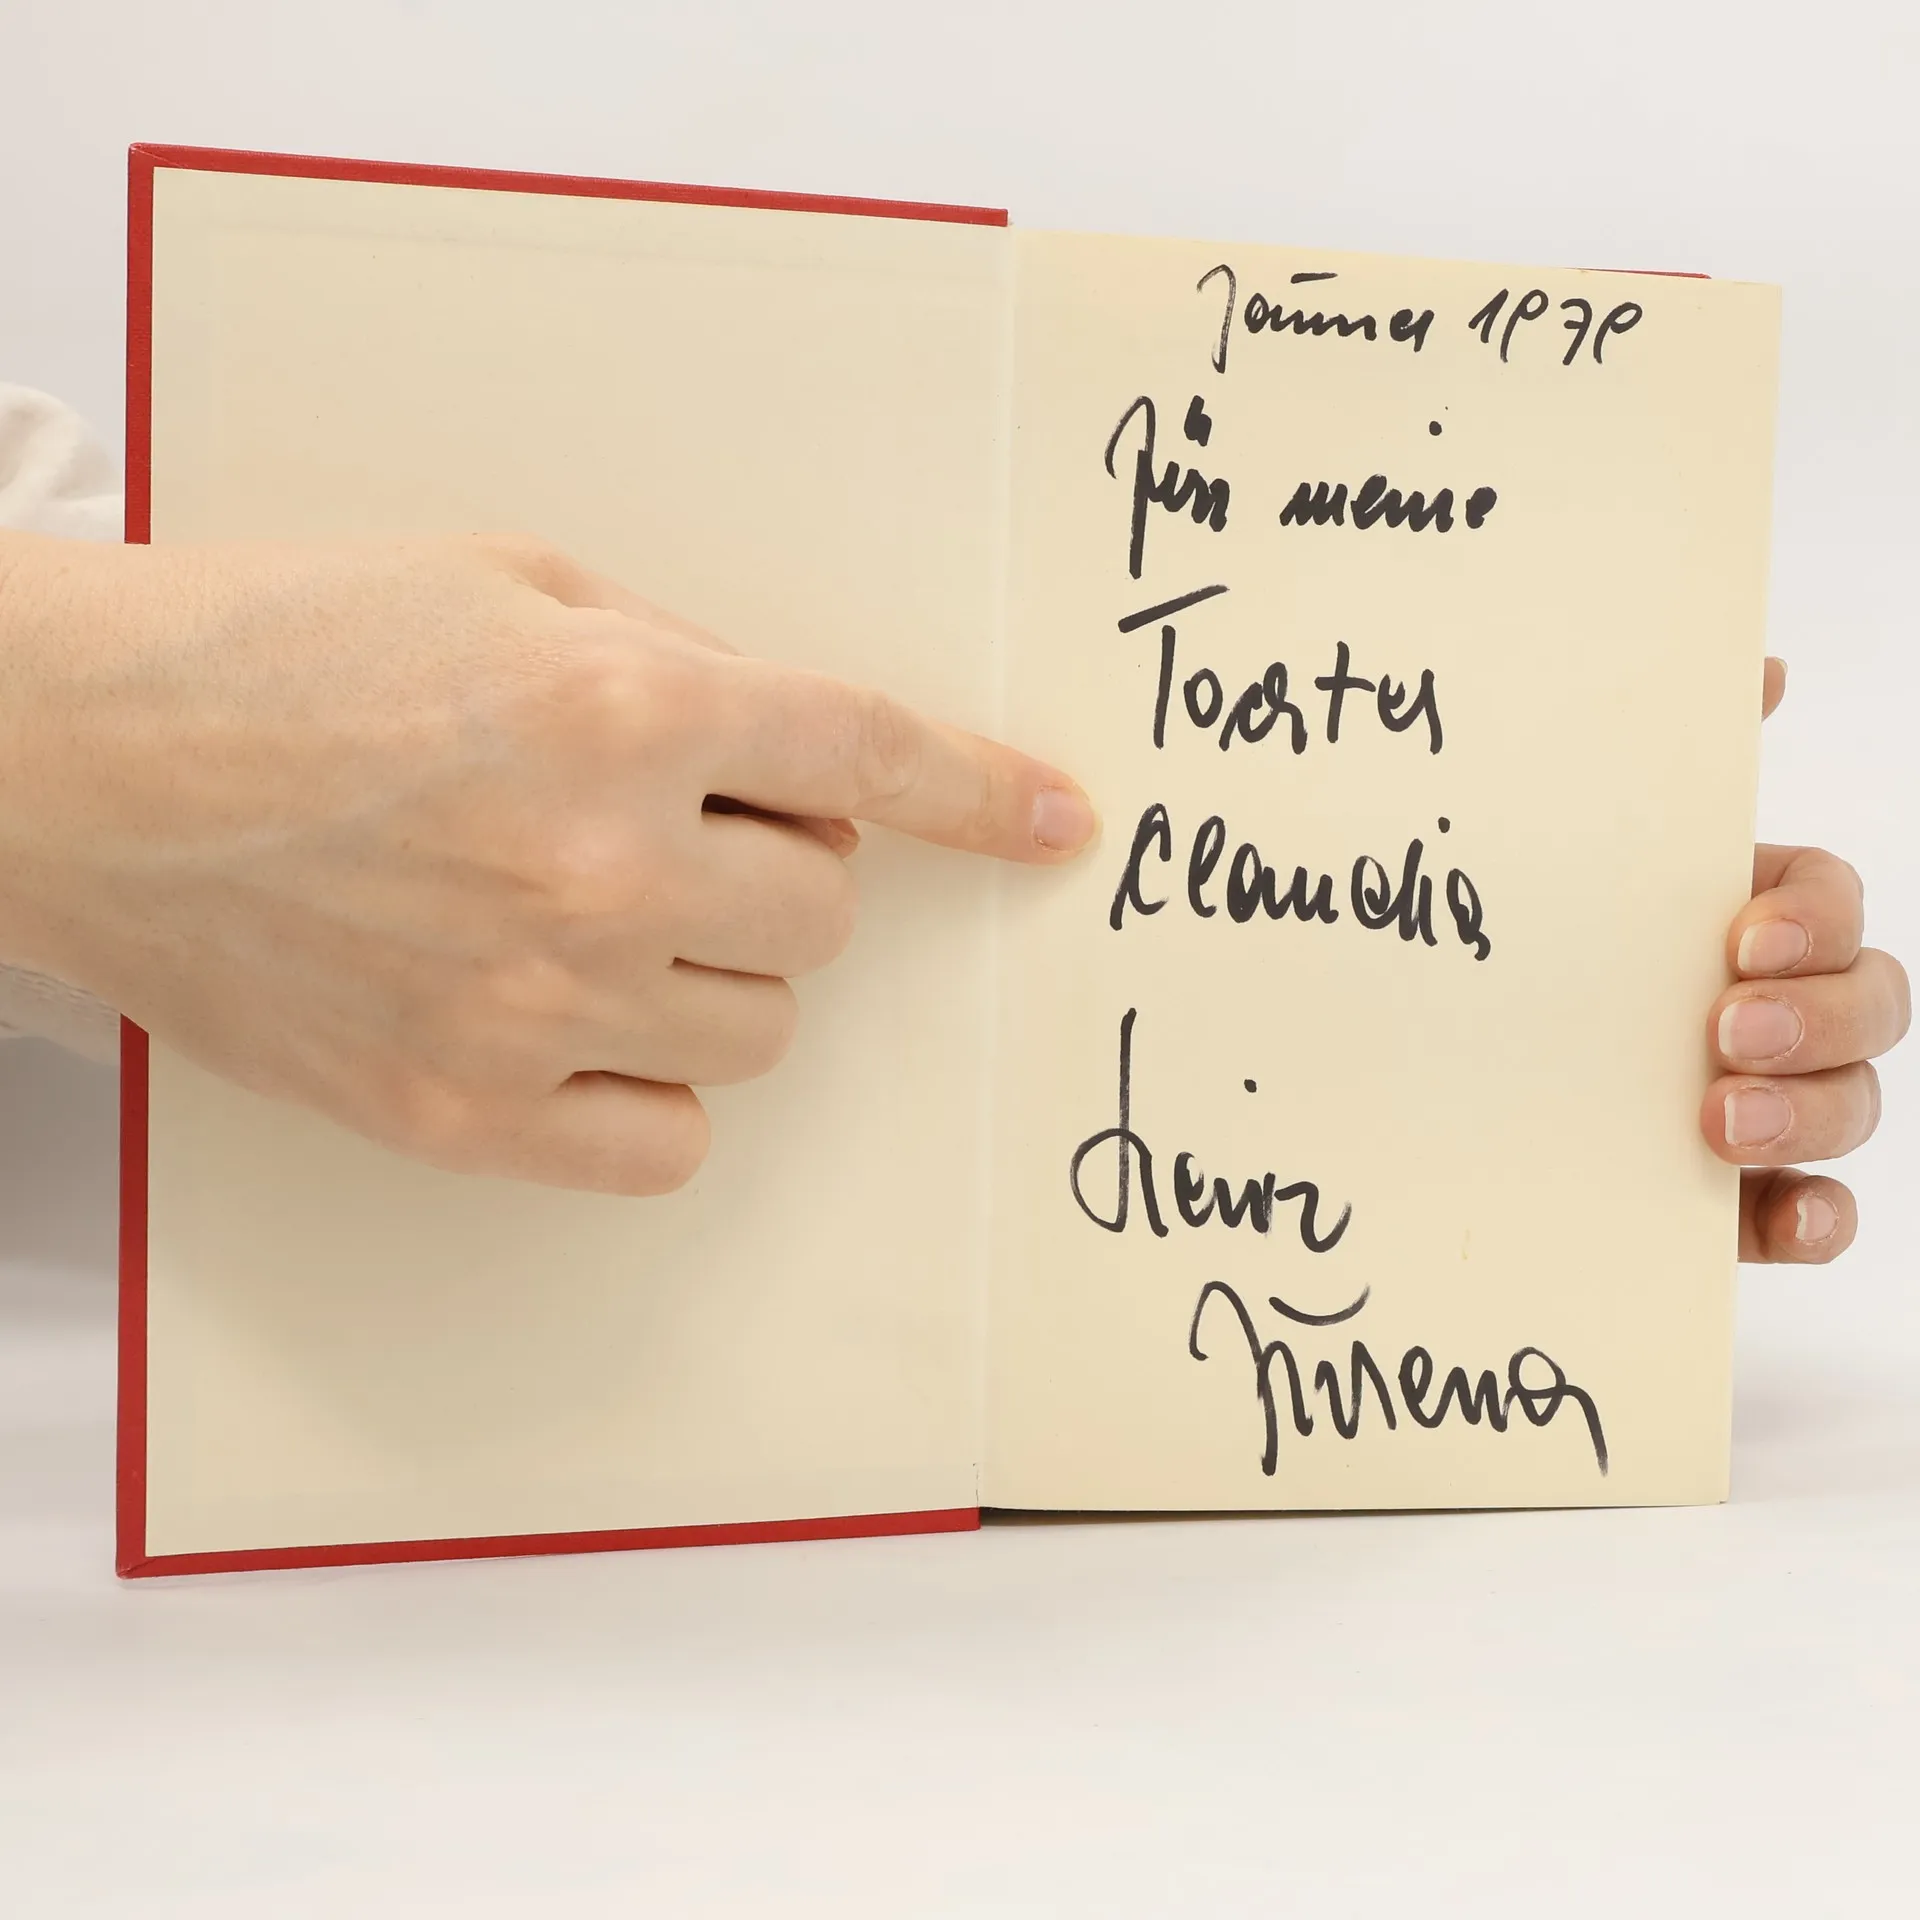 Jänner 1979
Für meine
Tochter
Claudia
Heinz